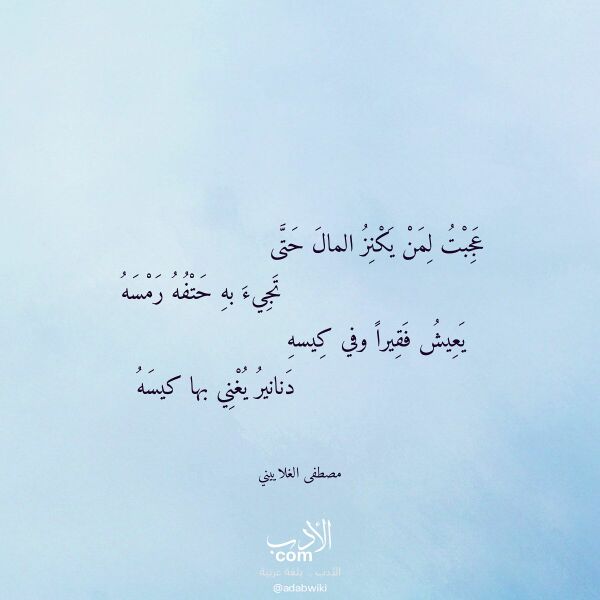 عَجِبْتُ لِمَنْ يَكْنِزُ المالَ حَتَّى
تَجِيءَ بهِ حَتْفُهُ رَمْسَهُ
يَعِيشُ فَقِيراً وفي كِيسهِ
دَنانيرُ يُغْنِي بها كيسَهُ
مصطفى الغلاييني
الأدب
com
الأدب .. بلغة عربية
@adabwiki